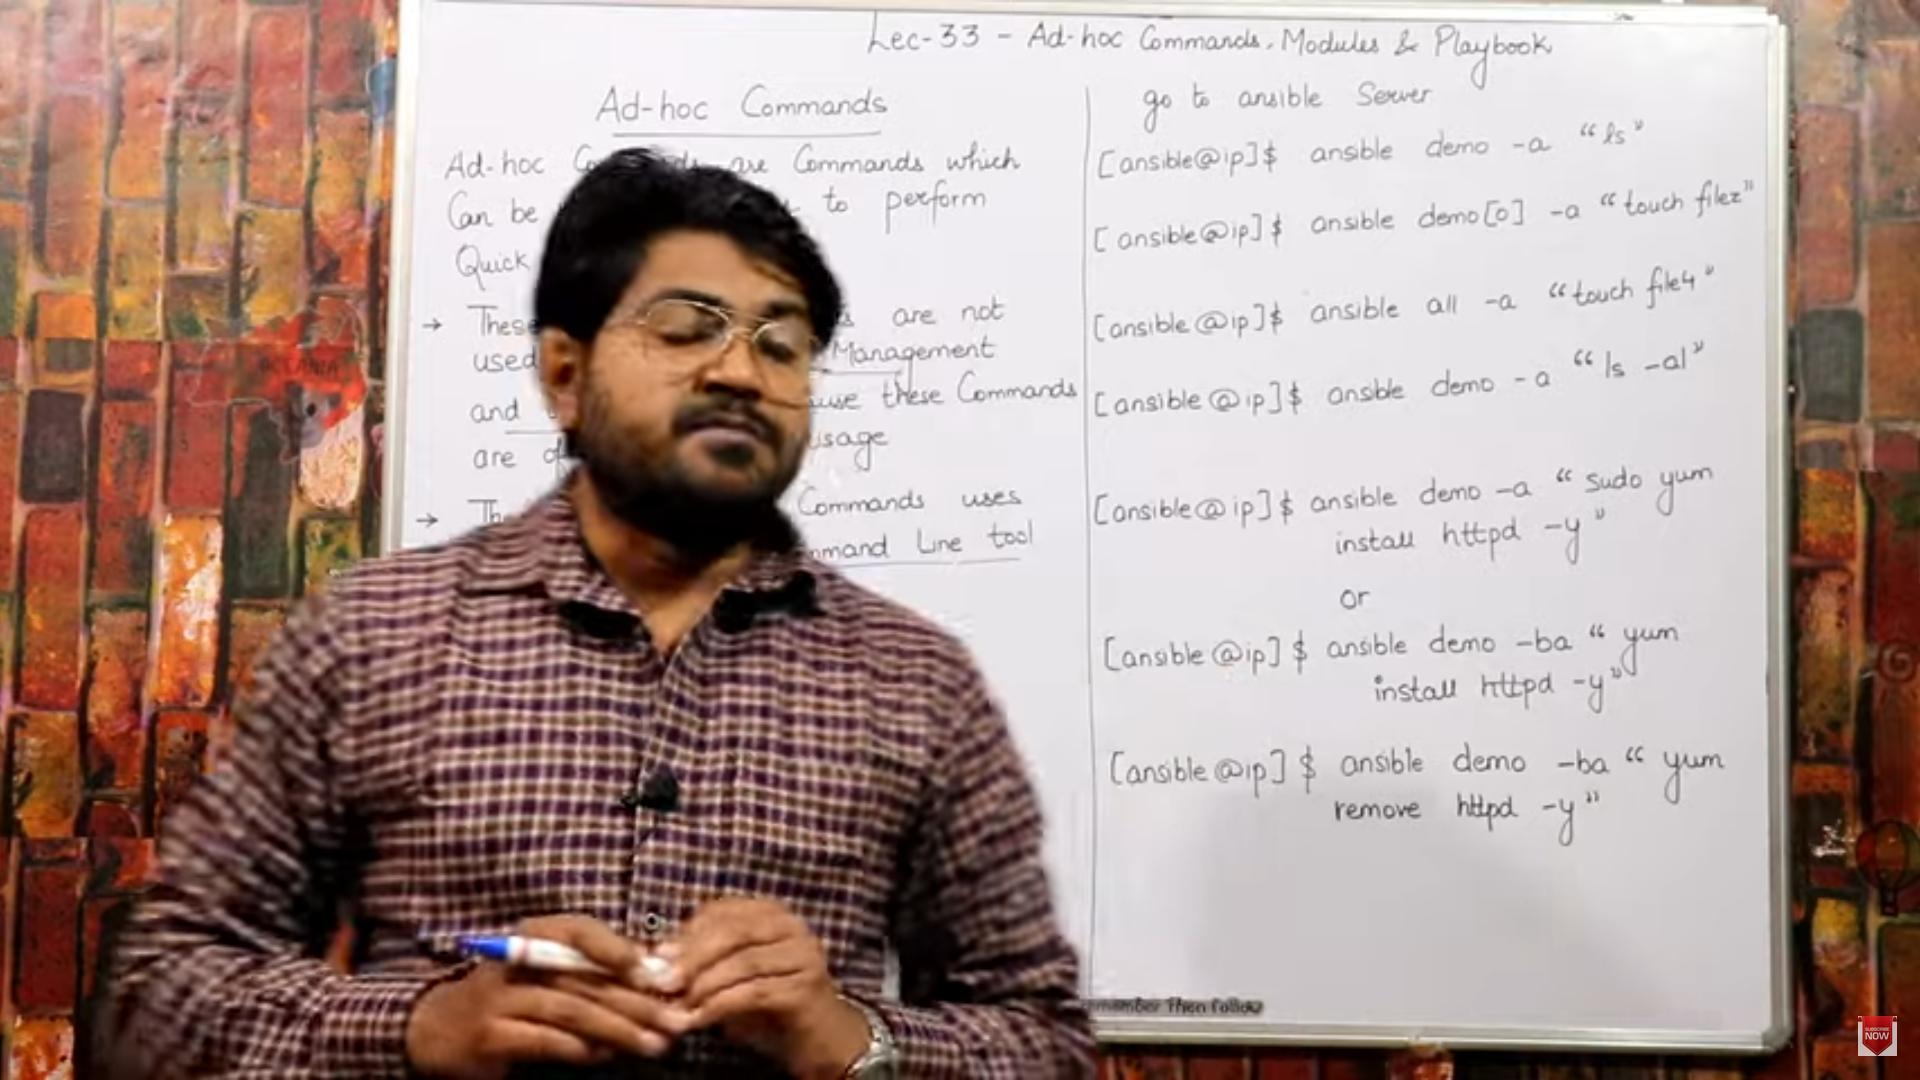 Lec-33 - Ad-hoc Commands, Modules & Playbook
Ad-hoc Commands
Ad-hoc are Commands which
Can be to perform
Quick
→ These are not
used Management
and these Commands
are usage
→ Commands uses
Command Line tool
go to ansible Server
[ansible@ip]$ ansible demo -a "ls"
[ansible@ip]$ ansible demo[0] -a "touch filez"
[ansible@ip]$ ansible all -a "touch file4"
[ansible@ip]$ ansble demo -a "ls -al"
[ansible@ip]$ ansible demo -a "sudo yum
install httpd -y"
or
[ansible@ip]$ ansible demo -ba "yum
install httpd -y"
[ansible@ip]$ ansible demo -ba "yum
remove httpd -y"
Then Follow
SUBSCRIBE
NOW